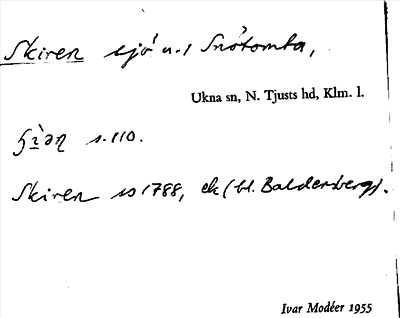 Skiren sjö u. Snötomta,
Ukna sn, N. Tjusts hd, Klm. l.
s. 110.
Skiren so 1788, ek (bl. Baldersberg).
Ivar Modéer 1955